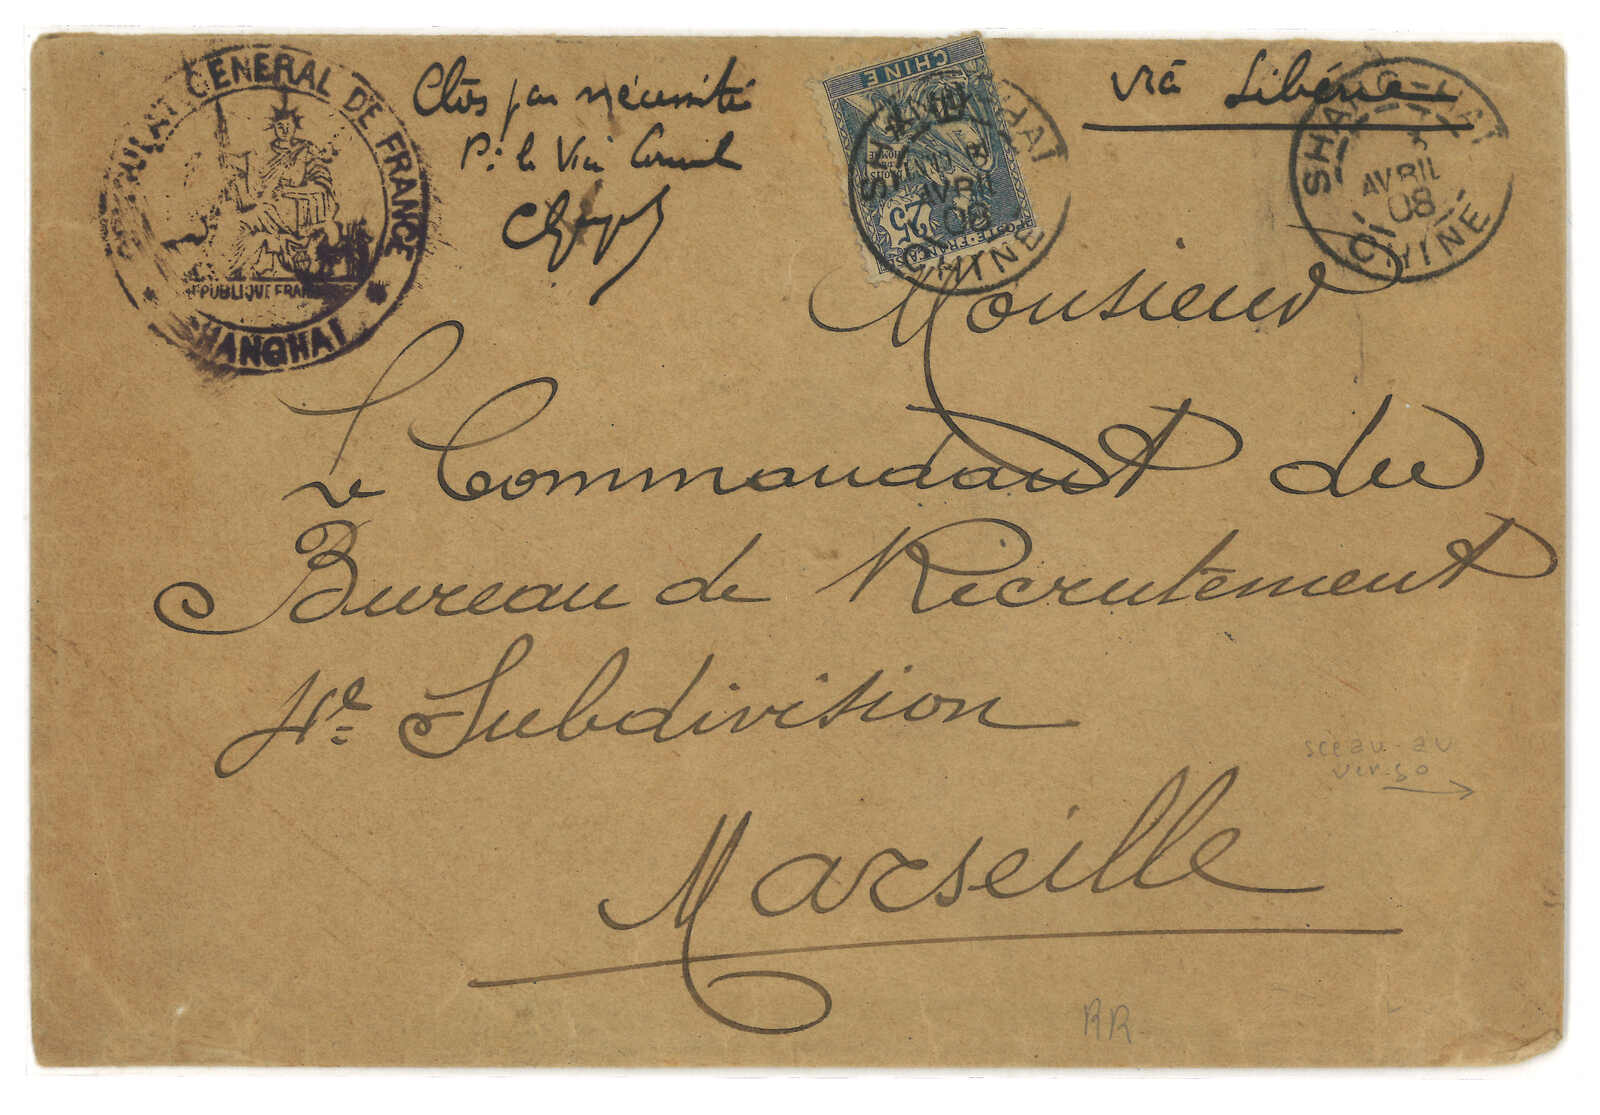 CONSULAT GENERAL DE FRANCE
REPUBLIQUE FRANCAISE
SHANGHAI
Clos par nécessité
P. le Vice Consul
CHINE
DROITS DE L'HOMME
25
POSTE FRANÇAISE
SHANG-HAI
AVRIL
08
CHINE
Viâ Sibérie
SHANG-HAI
AVRIL
08
CHINE
Monsieur
Le Commandant du
Bureau de Recrutement
4e Subdivision
Marseille
sceau au
verso
RR